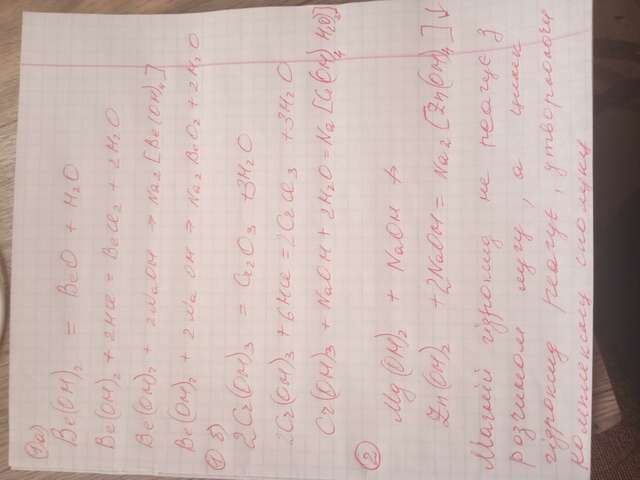 1 а)
Be(OH)₂ = BeO + H₂O
Be(OH)₂ + 2HCl = BeCl₂ + 2H₂O
Be(OH)₂ + 2NaOH → Na₂[Be(OH)₄]
Be(OH)₂ + 2NaOH → Na₂BeO₂ + 2H₂O
1 б)
2Cr(OH)₃ = Cr₂O₃ + 3H₂O
2Cr(OH)₃ + 6HCl = 2CrCl₃ + 3H₂O
Cr(OH)₃ + NaOH + 2H₂O = Na[Cr(OH)₄(H₂O)₂]
2
Mg(OH)₂ + NaOH ↛
Zn(OH)₂ + 2NaOH = Na₂[Zn(OH)₄]↓
Магній гідроксид не реагує з
розчином лугу, а цинк
гідроксид реагує, утворюючи
комплексну сполуку